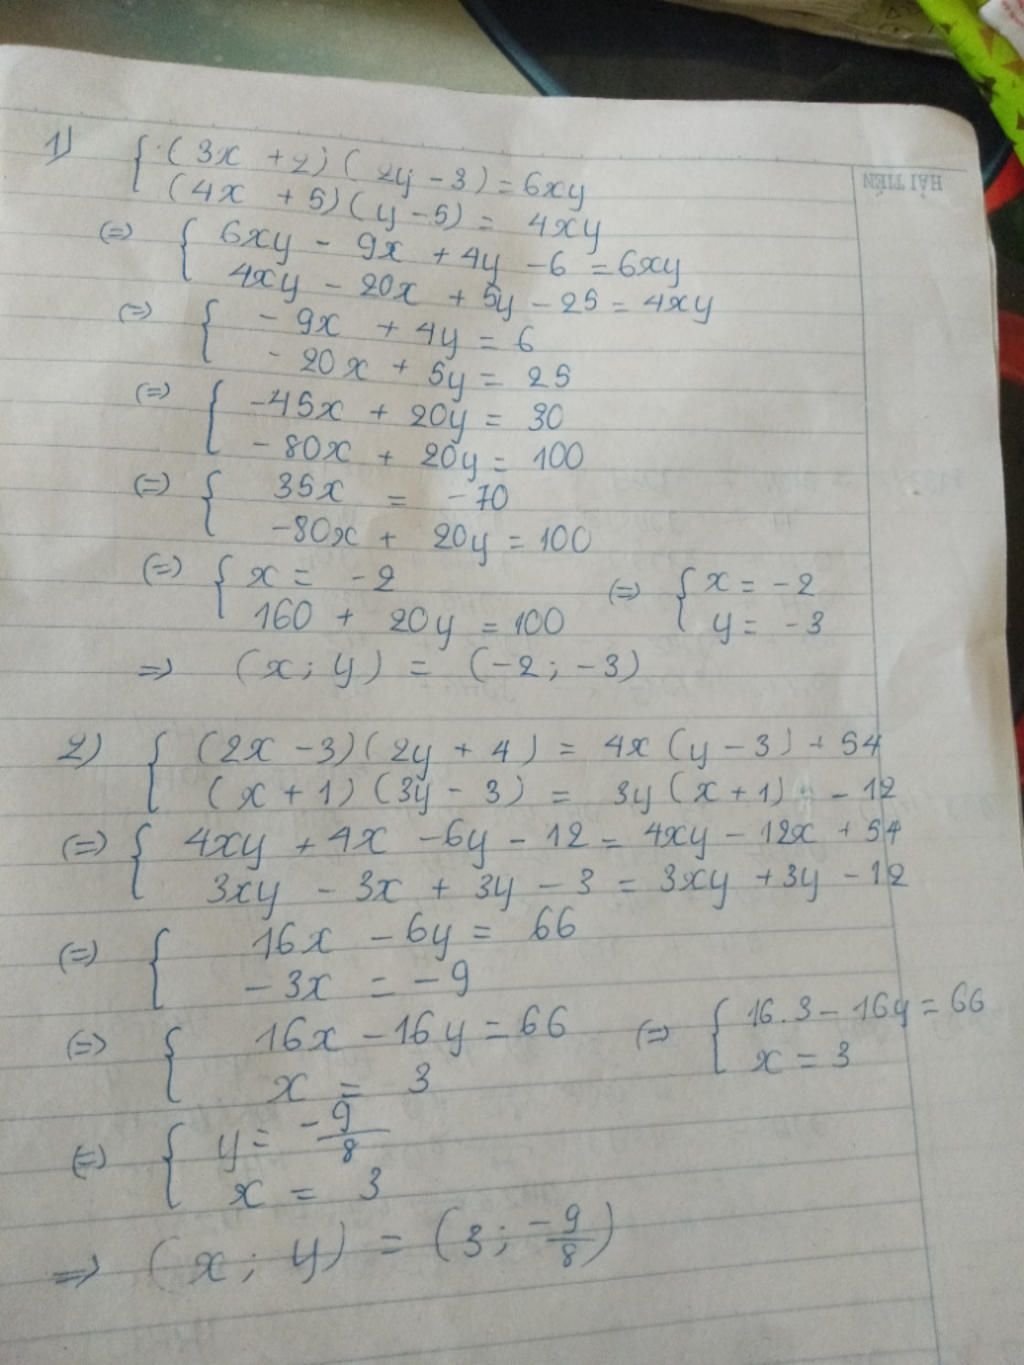 HẢI TIẾN
1) { (3x + 2)(2y - 3) = 6xy
(4x + 5)(y - 5) = 4xy
(=) { 6xy - 9x + 4y - 6 = 6xy
4xy - 20x + 5y - 25 = 4xy
(=) { - 9x + 4y = 6
- 20x + 5y = 25
(=) { -45x + 20y = 30
- 80x + 20y = 100
(=) { 35x = -70
-80x + 20y = 100
(=) { x = -2 (=) { x = -2
160 + 20y = 100 y = -3
=> (x; y) = (-2; -3)
2) { (2x - 3)(2y + 4) = 4x(y - 3) + 54
(x + 1)(3y - 3) = 3y(x + 1) - 12
(=) { 4xy + 4x - 6y - 12 = 4xy - 12x + 54
3xy - 3x + 3y - 3 = 3xy + 3y - 12
(=) { 16x - 6y = 66
- 3x = - 9
(=) { 16x - 16y = 66 (=) { 16.3 - 16y = 66
x = 3 x = 3
(=) { y = -9/8
x = 3
=> (x; y) = (3; -9/8)